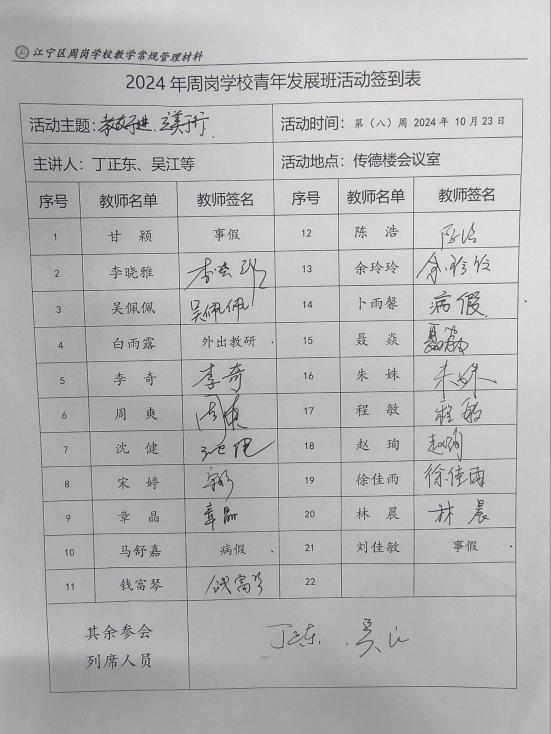 江宁区周岗学校教学常规管理材料
2024年周岗学校青年发展班活动签到表
活动主题： 活动时间：第（八）周 2024年10月23日
主讲人：丁正东、吴江等 活动地点：传德楼会议室
序号 教师名单 教师签名 序号 教师名单 教师签名
1 甘颖 事假 12 陈浩 陈浩
2 李晓雅 李晓雅 13 余玲玲 余玲玲
3 吴佩佩 吴佩佩 14 卜雨馨 病假
4 白雨露 外出教研 15 聂焱 聂焱
5 李奇 李奇 16 朱姝 朱姝
6 周爽 周爽 17 程敏 程敏
7 沈健 沈健 18 赵珣 赵珣
8 宋婷 宋婷 19 徐佳雨 徐佳雨
9 章晶 章晶 20 林晨 林晨
10 马舒嘉 病假 21 刘佳敏 事假
11 钱富琴 钱富琴 22
其余参会
列席人员 丁正东 吴江